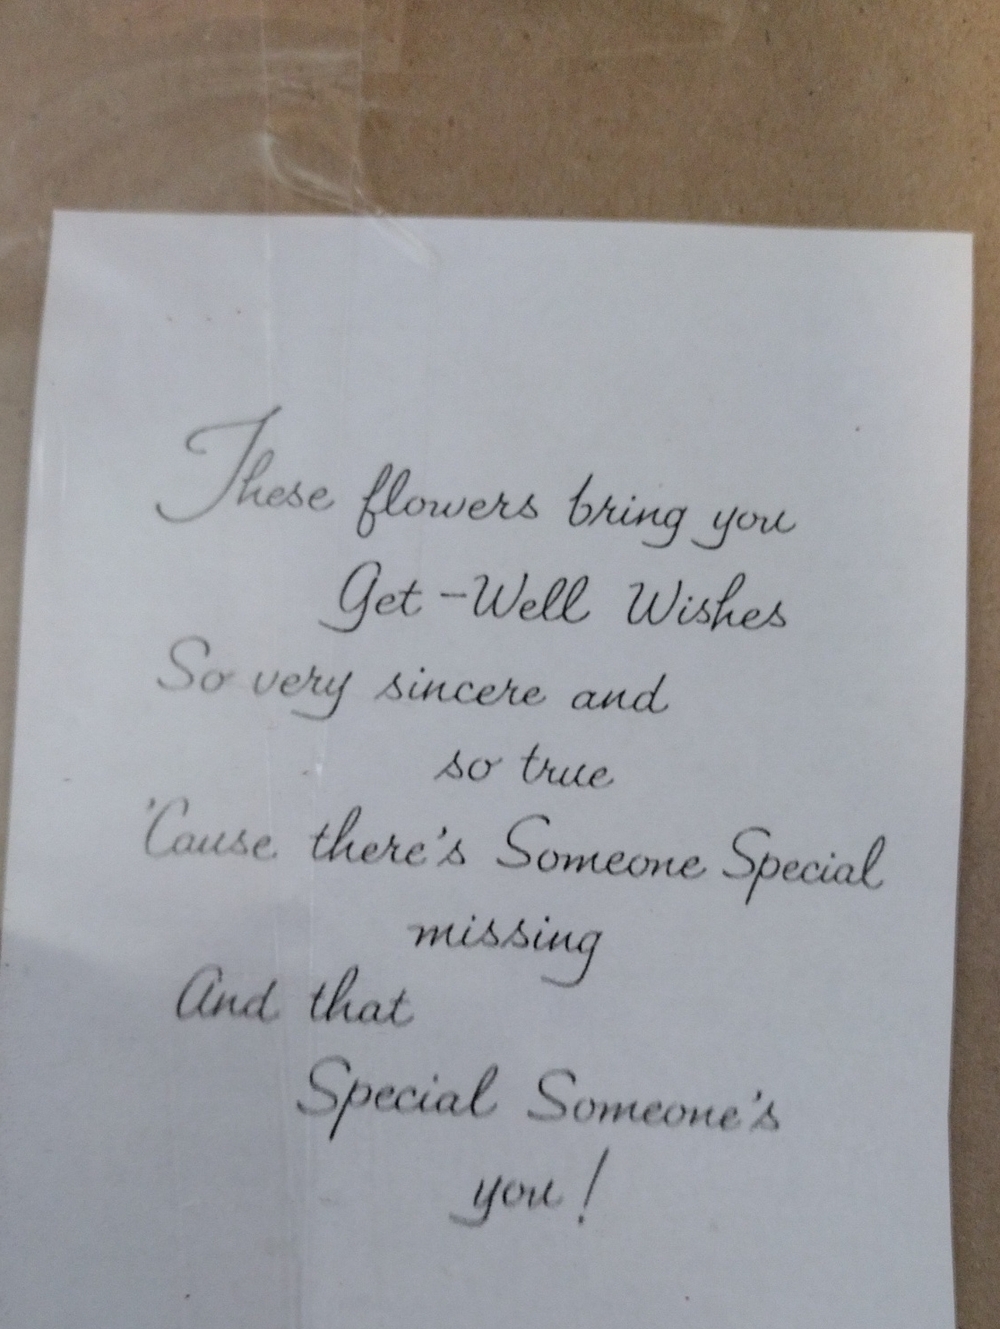 These flowers bring you
Get-Well Wishes
So very sincere and
so true
'Cause there's Someone Special
missing
And that
Special Someone's
you!